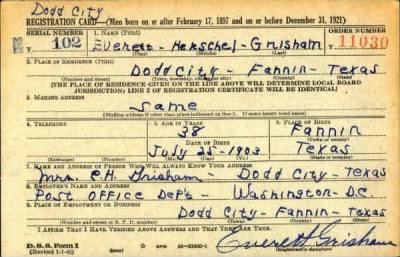 Dodd City
REGISTRATION CARD—(Men born on or after February 17, 1897 and on or before December 31, 1921)
SERIAL NUMBER 1. NAME (Print) ORDER NUMBER
102 Everett - Herschel - Grisham 11030
2. PLACE OF RESIDENCE (Print)
Dodd City - Fannin - Texas
(Number and street) (Town, township, village, or city) (County) (State)
[THE PLACE OF RESIDENCE GIVEN ON THE LINE ABOVE WILL DETERMINE LOCAL BOARD
JURISDICTION; LINE 2 OF REGISTRATION CERTIFICATE WILL BE IDENTICAL]
3. MAILING ADDRESS
Same
[Mailing address if other than place indicated on line 2. If same insert word same]
4. TELEPHONE 5. AGE IN YEARS 6. PLACE OF BIRTH
38 Fannin
DATE OF BIRTH (Town or county)
July 25 - 1903 Texas
(Exchange) (Number) (Mo.) (Day) (Yr.) (State or country)
7. NAME AND ADDRESS OF PERSON WHO WILL ALWAYS KNOW YOUR ADDRESS
Mrs. E.H. Grisham - Dodd City - Texas
8. EMPLOYER'S NAME AND ADDRESS
Post Office Dep't - Washington - D.C.
9. PLACE OF EMPLOYMENT OR BUSINESS
Dodd City - Fannin - Texas
(Number and street or R. F. D. number) (Town) (County) (State)
I AFFIRM THAT I HAVE VERIFIED ABOVE ANSWERS AND THAT THEY ARE TRUE.
D. S. S. Form 1
(Revised 1-1-42)
Everett Grisham